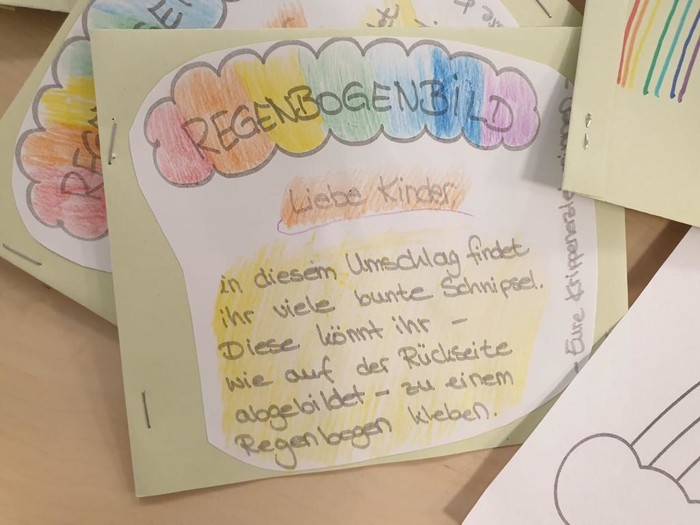 REGENBOGENBILD
Liebe Kinder
in diesem Umschlag findet
ihr viele bunte Schnipsel.
Diese könnt ihr -
wie auf der Rückseite
abgebildet - zu einem
Regenbogen kleben.
- Eure